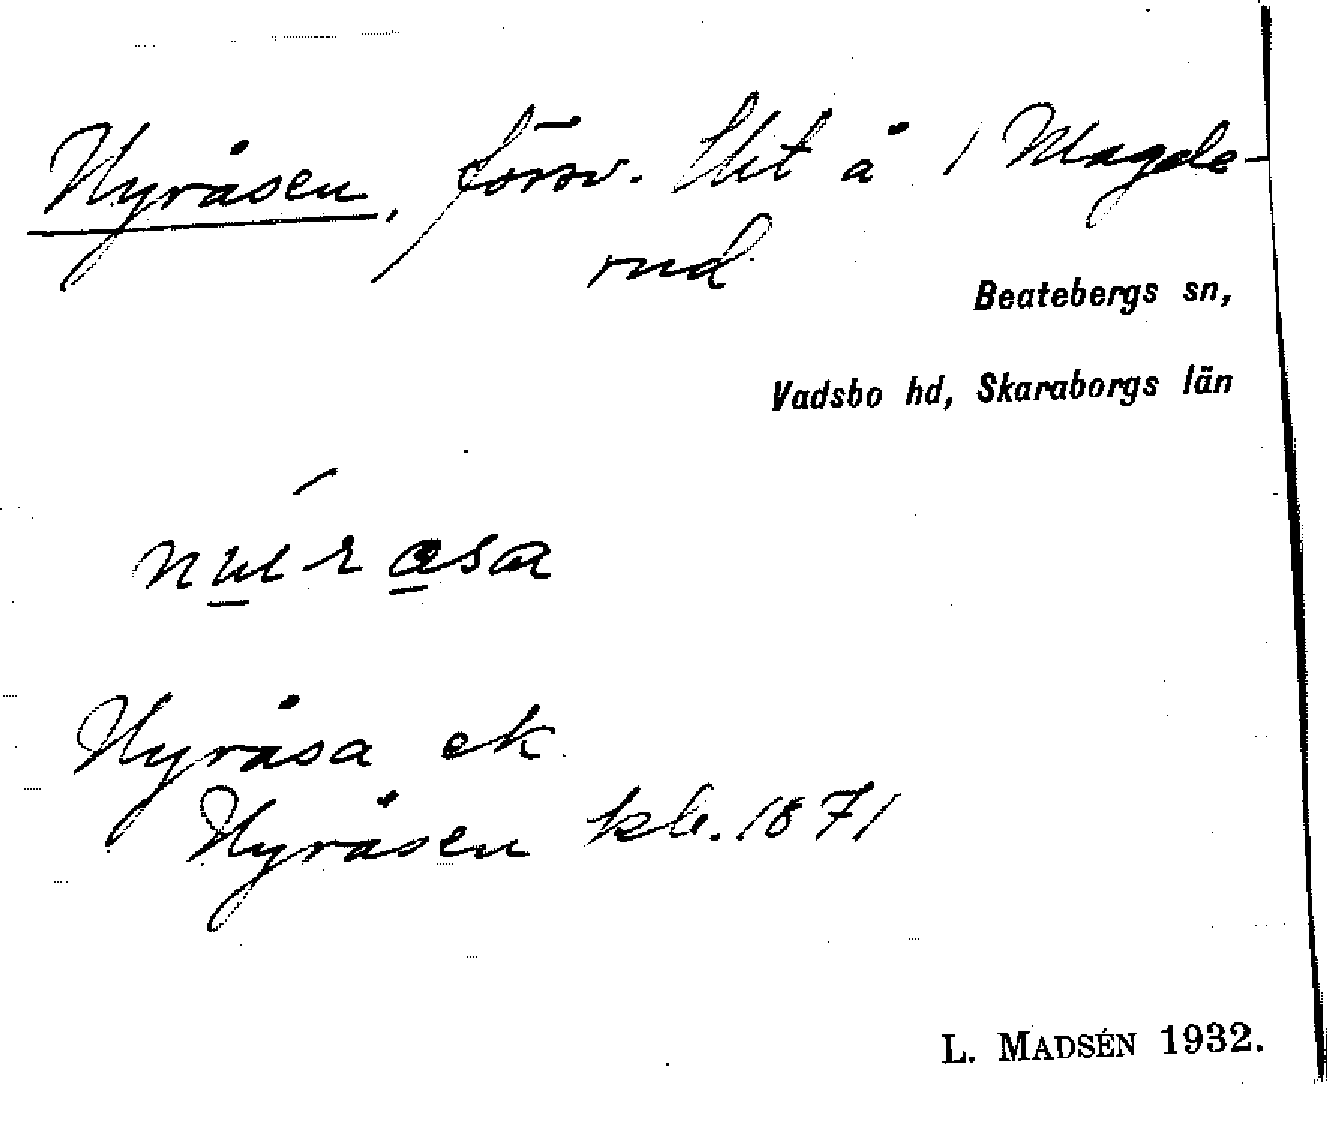 Nyråsen, försv. lht å 1 Magde-
rud
Beatebergs sn,
Vadsbo hd, Skaraborgs län
Nyråsa ek.
Nyråsen kb. 1871
L. MADSÉN 1932.